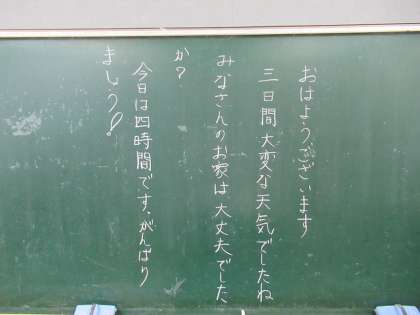 おはようございます
三日間大変な天気でしたね
みなさんのお家は大丈夫でした
か?
今日は四時間です、がんばり
ましょう!